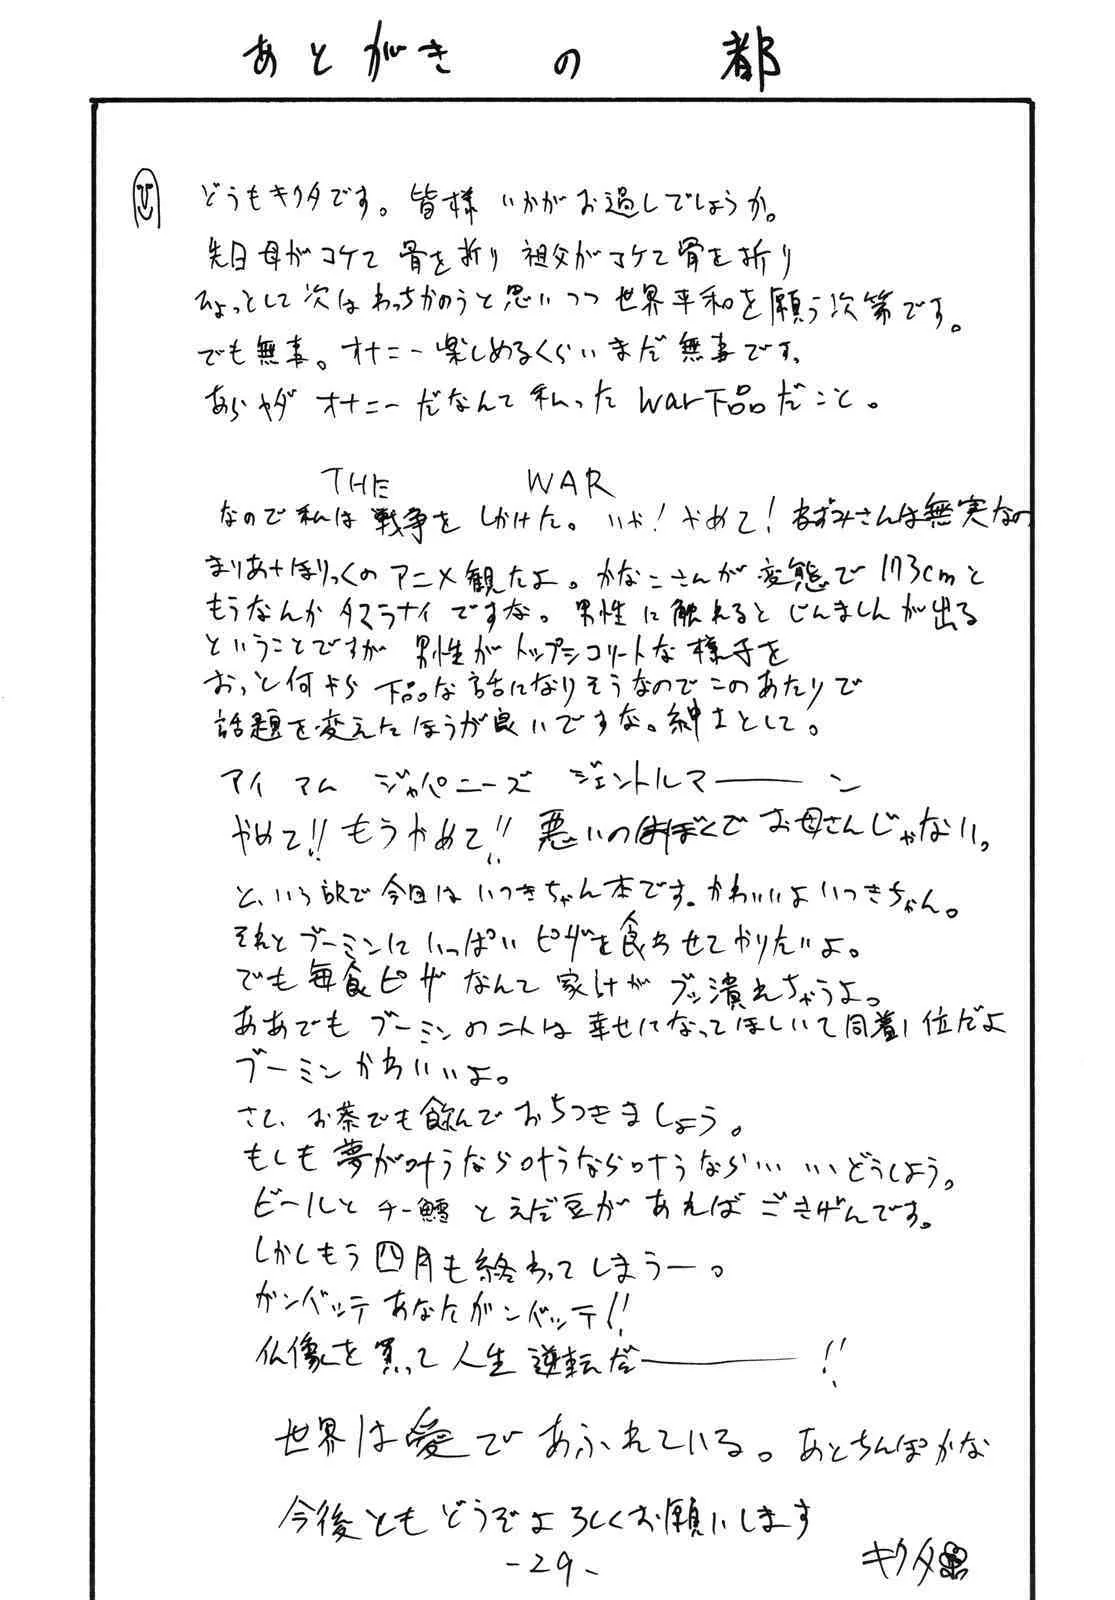 あとがきの都
どうもキクタです。皆様いかがお過しでしょうか。
先日母がコケて骨を折り祖父がコケて骨を折り
ひょっとして次はわっちかのうと思いつつ世界平和を願う次第です。
でも無事。オナニー楽しめるくらいまだ無事です、
あらヤダ オナニーだなんて私ったwar下品だこと。
THE WAR
なので私は戦争をしかけた。いや!やめて!あずみさんは無実なの
まりあ†ほりっくのアニメ観たよ。かなこさんが変態で173cmと
もうなんかタマラナイですな。男性に触れるとじんましんが出る
ということですが 男性がトップシコリートな様子を
おっと何やら下品な話になりそうなのでこのあたりで
話題を変えたほうが良いですな。紳士として。
アイ アム ジャパニーズ ジェントルマーーン
やめて!!もうやめて!!悪いのはぼくでお母さんじゃない。
と、いう訳で今回はいつきちゃん本です。かわいいよいつきちゃん。
それとブーミンにいっぱいピザを食わせてやりたいよ。
でも毎食ピザなんて家計がブッ潰れちゃうよ。
ああでもブーミンの二人は幸せになってほしいで同着1位だよ
ブーミンかわいいよ。
さて、お茶でも飲んでおちつきましょう。
もしも夢が叶うなら叶うなら叶うなら……どうしよう。
ビールとチー鱈とえだ豆があればごきげんです。
しかしもう四月も終わってしまうー。
ガンバッテあなたガンバッテ!!
仏像を買って人生逆転だーー!!
世界は愛であふれている。あとちんぽかな
今後ともどうぞよろしくお願いします
キクタ
-29-